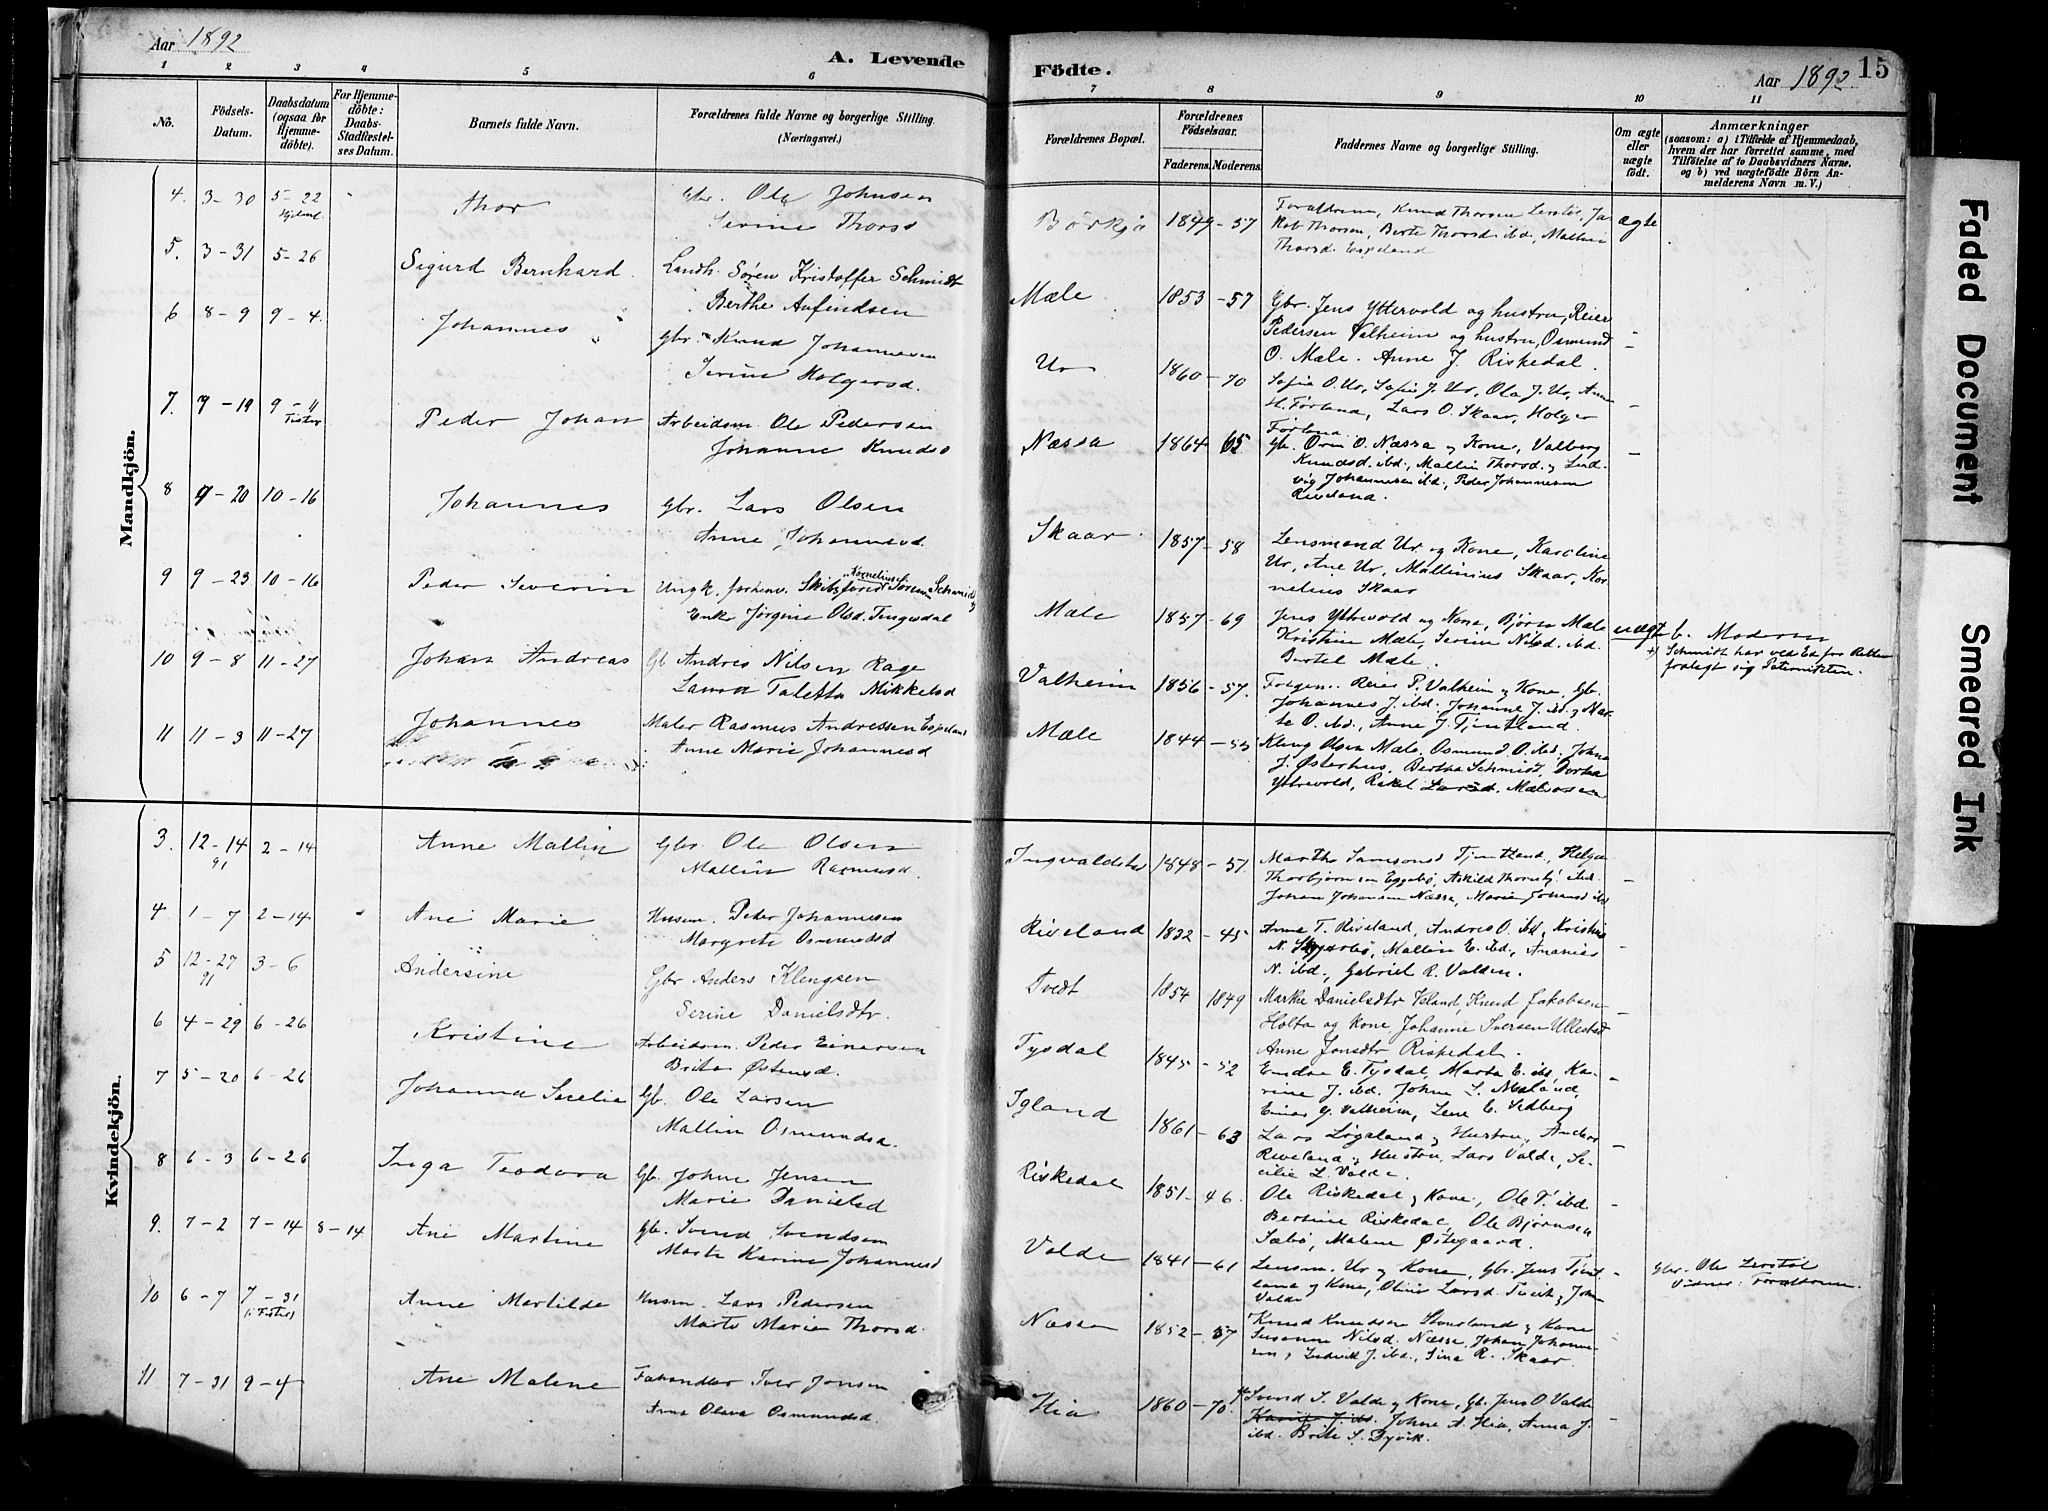 Aar 1892
A. Levende
1 2 3 4 5 6
No.
Födsels-
Datum.
Daabsdatum
(ogsaa for
Hjemme-
döbte).
For Hjemme-
döbte:
Daabs-
Stadfæstel-
ses Datum.
Barnets fulde Navn.
Forældrenes fulde Navne og borgerlige Stilling.
(Næringsvei.)
Mandkjön.
4. 3-30 5-22 Thor Gbr. Ole Johnsen
Serine Thorsd
5. 3-31 5-26 Sigurd Bernhard. Landh. Søren Kristoffer Schmidt
Berthe Anfindsen
6 8-9 9-4. Johannes Gbr. Knud Johannesen
Serine Holgersd.
7. 7-19 9-11 Peder Johan Arbeidsm. Ole Pedersen
Fister
Johanne Knudsd
8 9-20 10-16 Johannes Gbr. Lars Olsen
Anne Johannesd.
9 9-23 10-16 Peder Severin Ungk. forhenv. Skibsfører Sørensen Schmidt
Kornelius
Enke Jørgine Olsd. Tengesdal
10 9-8 11-27 Johan Andreas Gb Andres Nilsen Rage
Laura Taletta Mikkelsd
11 11-3 11-27 Johannes Maler Rasmus Andreassen Espeland
Anne Marie Johannesd
Kvindekjön.
3. 12-14 2-14 Anne Mallin Gbr. Ole Olsen
91
Mallin Rasmusd.
4 1-7 2-14 Ane Marie Husm. Peder Johannesen
Margrete Osmundsd
5 12-27 3-6 Andersine Gbr Anders Klengsen
91
Serine Danielsdtr.
6 4-29 6-26 Kristine Arbeidsm. Peder Einersen
Brita Østensd.
7 5-20 6-26 Johanna Secelia Gb. Ole Larsen
Mallin Osmundsd.
8 6-3 6-26 Inga Teodora Gb. Johne Jensen
Marie Danielsd
9. 7-2 7-14 8-14 Ane Martine Gb. Svend Svendsen
Marte Karine Johannesd
10 6-7 7-31 Anne Martilde Husm. Lars Pedersen
(i Fister)
Marte Marie Thorsd.
11 7-31 9-4 Ane Malene Fehandler Iver Jonsen
Anna Olava Osmundsd.
Födte.
Aar 1892
15
7 8 9 10 11
Forældrenes Bopæl.
Forældrenes
Födselsaar.
Faderens. Moderens.
Faddernes Navne og borgerlige Stilling.
Om ægte
eller
uægte
födt.
Anmærkninger
(saasom: a) i Tilfælde af Hjemmedaab,
hvem der har forrettet samme, med
Tilföielse af to Daabsvidners Navne.
og b) ved uægtefödte Börn An-
melderens Navn m. V.)
Börkja 1849-57 Forældrene, Knud Thorsen Lerstøl, Ja- ægte
kob Thorsen, Berte Thorsd. ibd., Mallin
Thorsd. Espeland
Mæle 1853-57 Gbr. Jens Yttervold og hustru, Reier
Pedersen Valheim og hustru, Osmund -
O. Mæle. Anne J. Riskedal.
Ur 1860-70 Sofie O. Ur, Sofie J. Ur, Ola J. Ur, Anne
H. Førland, Lars O. Skaar, Holger -
Førland
Næssa 1864 65 Gb. Orm O. Næssa og Kone, Valborg
Knudsd. ibd., Mallin Thorsd. og Lud- -
vig Johannesen ibd., Peder Johannesen
Riveland.
Skaar 1857-58 Lensmand Ur og Kone, Karoline
Ur, Ane Ur, Mallinius Skaar, Kor-
nelius Skaar
Mæle 1857-69 Jens Yttrevold og Kone, Bjørn Mæle uægte b. Moderen
Kristine Mæle, Serine Nilsd. ibd. +) Schmidt har ved Ed for Retten
Bertel Mæle. fralagt sig Paterniteten.
Valheim 1856-57. Forgem. Reier P. Valheim og Kone, Gb.
Johannes J. ibd. Johanne J. ibd. og Mar-
te O. ibd., Anne J. Tjentland.
Mæle 1844-55 Kleng Olsen Mæle, Osmund O. ibd., Johna
J. Østerhus, Bertha Schmidt, Dorthea
Yttrevold, Rakel Larsd. Mælaosen
Ingvaldstad 1848-57. Marthe Samsonsd Tjentland, Helge
Thorbjørnsen Eggebø, Askild Thorns. ibd. -
Johan Johansen Næssa, Marie Johansd ibd
Riveland 1832-45 Anna T. Riveland, Andres O. ibd, Kristine
N. Skjærbø, Mallin E. ibd., Ananias -
N. ibd., Gabriel R. Valden.
Tvedt 1854 1849 Marthe Danielsdtr Veland, Knud Jakobsen
Holta og Kone, Johanne Iversen Ullestad -
Anne Jonsdtr Riskedal.
Tysdal 1845-52 Endre E. Tysdal, Marta E. ibd, Ka-
rine J. ibd. Johne L. Meland, -
Einar G. Valheim, Lene E. Sedberg
Igland 1861-63 Lars Løgaland og Hustru, Anders -
Riveland og Hustru, Lars Valde, Se-
cilie L. Valde.
Riskedal 1851-46. Ole Riskedal og Kone, Ole T. ibd. -
Bertine Riskedal, Ole Bjørnsen
Sæbø, Malene Østegaard.
Valde 1841-61 Lensm. Ur og Kone, Gbr. Jens Tjent- - Gbr. Ole Lerstøl
land og Kone, Oline Larsd. Tveit og John Vidner: Forældrene.
Valde
Næssa 1852-57 Knud Knudsen Hovland og Kone
Susanne Nilsd. Næssa, Johan Johanne- -
sen, Ludvik J. ibd., Sina R. Skaar.
Hia 1860-70. Gb Svend S. Valde og Kone, Gb. Jens O Valde
Karie J. ibd. Johne A. Hia, Anna J. -
ibd. Brite S. Dyvik.
Faded Document
Smeared Ink